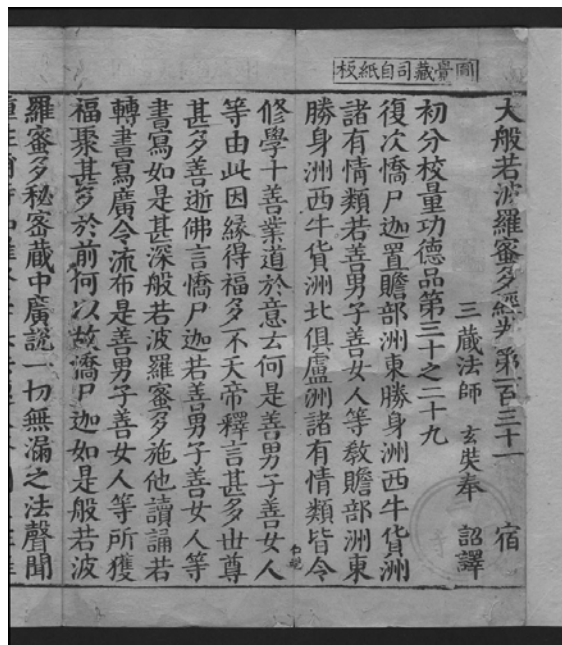 圓覺藏司自紙板
大般若波羅蜜多經卷第一百三十一 宿
三藏法師 玄奘奉 詔譯
初分校量功德品第三十之二十九
復次憍尸迦置贍部洲東勝身洲西牛貨洲
諸有情類若善男子善女人等教贍部洲東
勝身洲西牛貨洲北俱盧洲諸有情類皆令
修學十善業道於意云何是善男子善女人
等由此因緣得福多不天帝釋言甚多世尊
甚多善逝佛言憍尸迦若善男子善女人等
書寫如是甚深般若波羅蜜多施他讀誦若
轉書寫廣令流布是善男子善女人等所獲
福聚甚多於前何以故憍尸迦如是般若波
羅蜜多秘密藏中廣說一切無漏之法聲聞